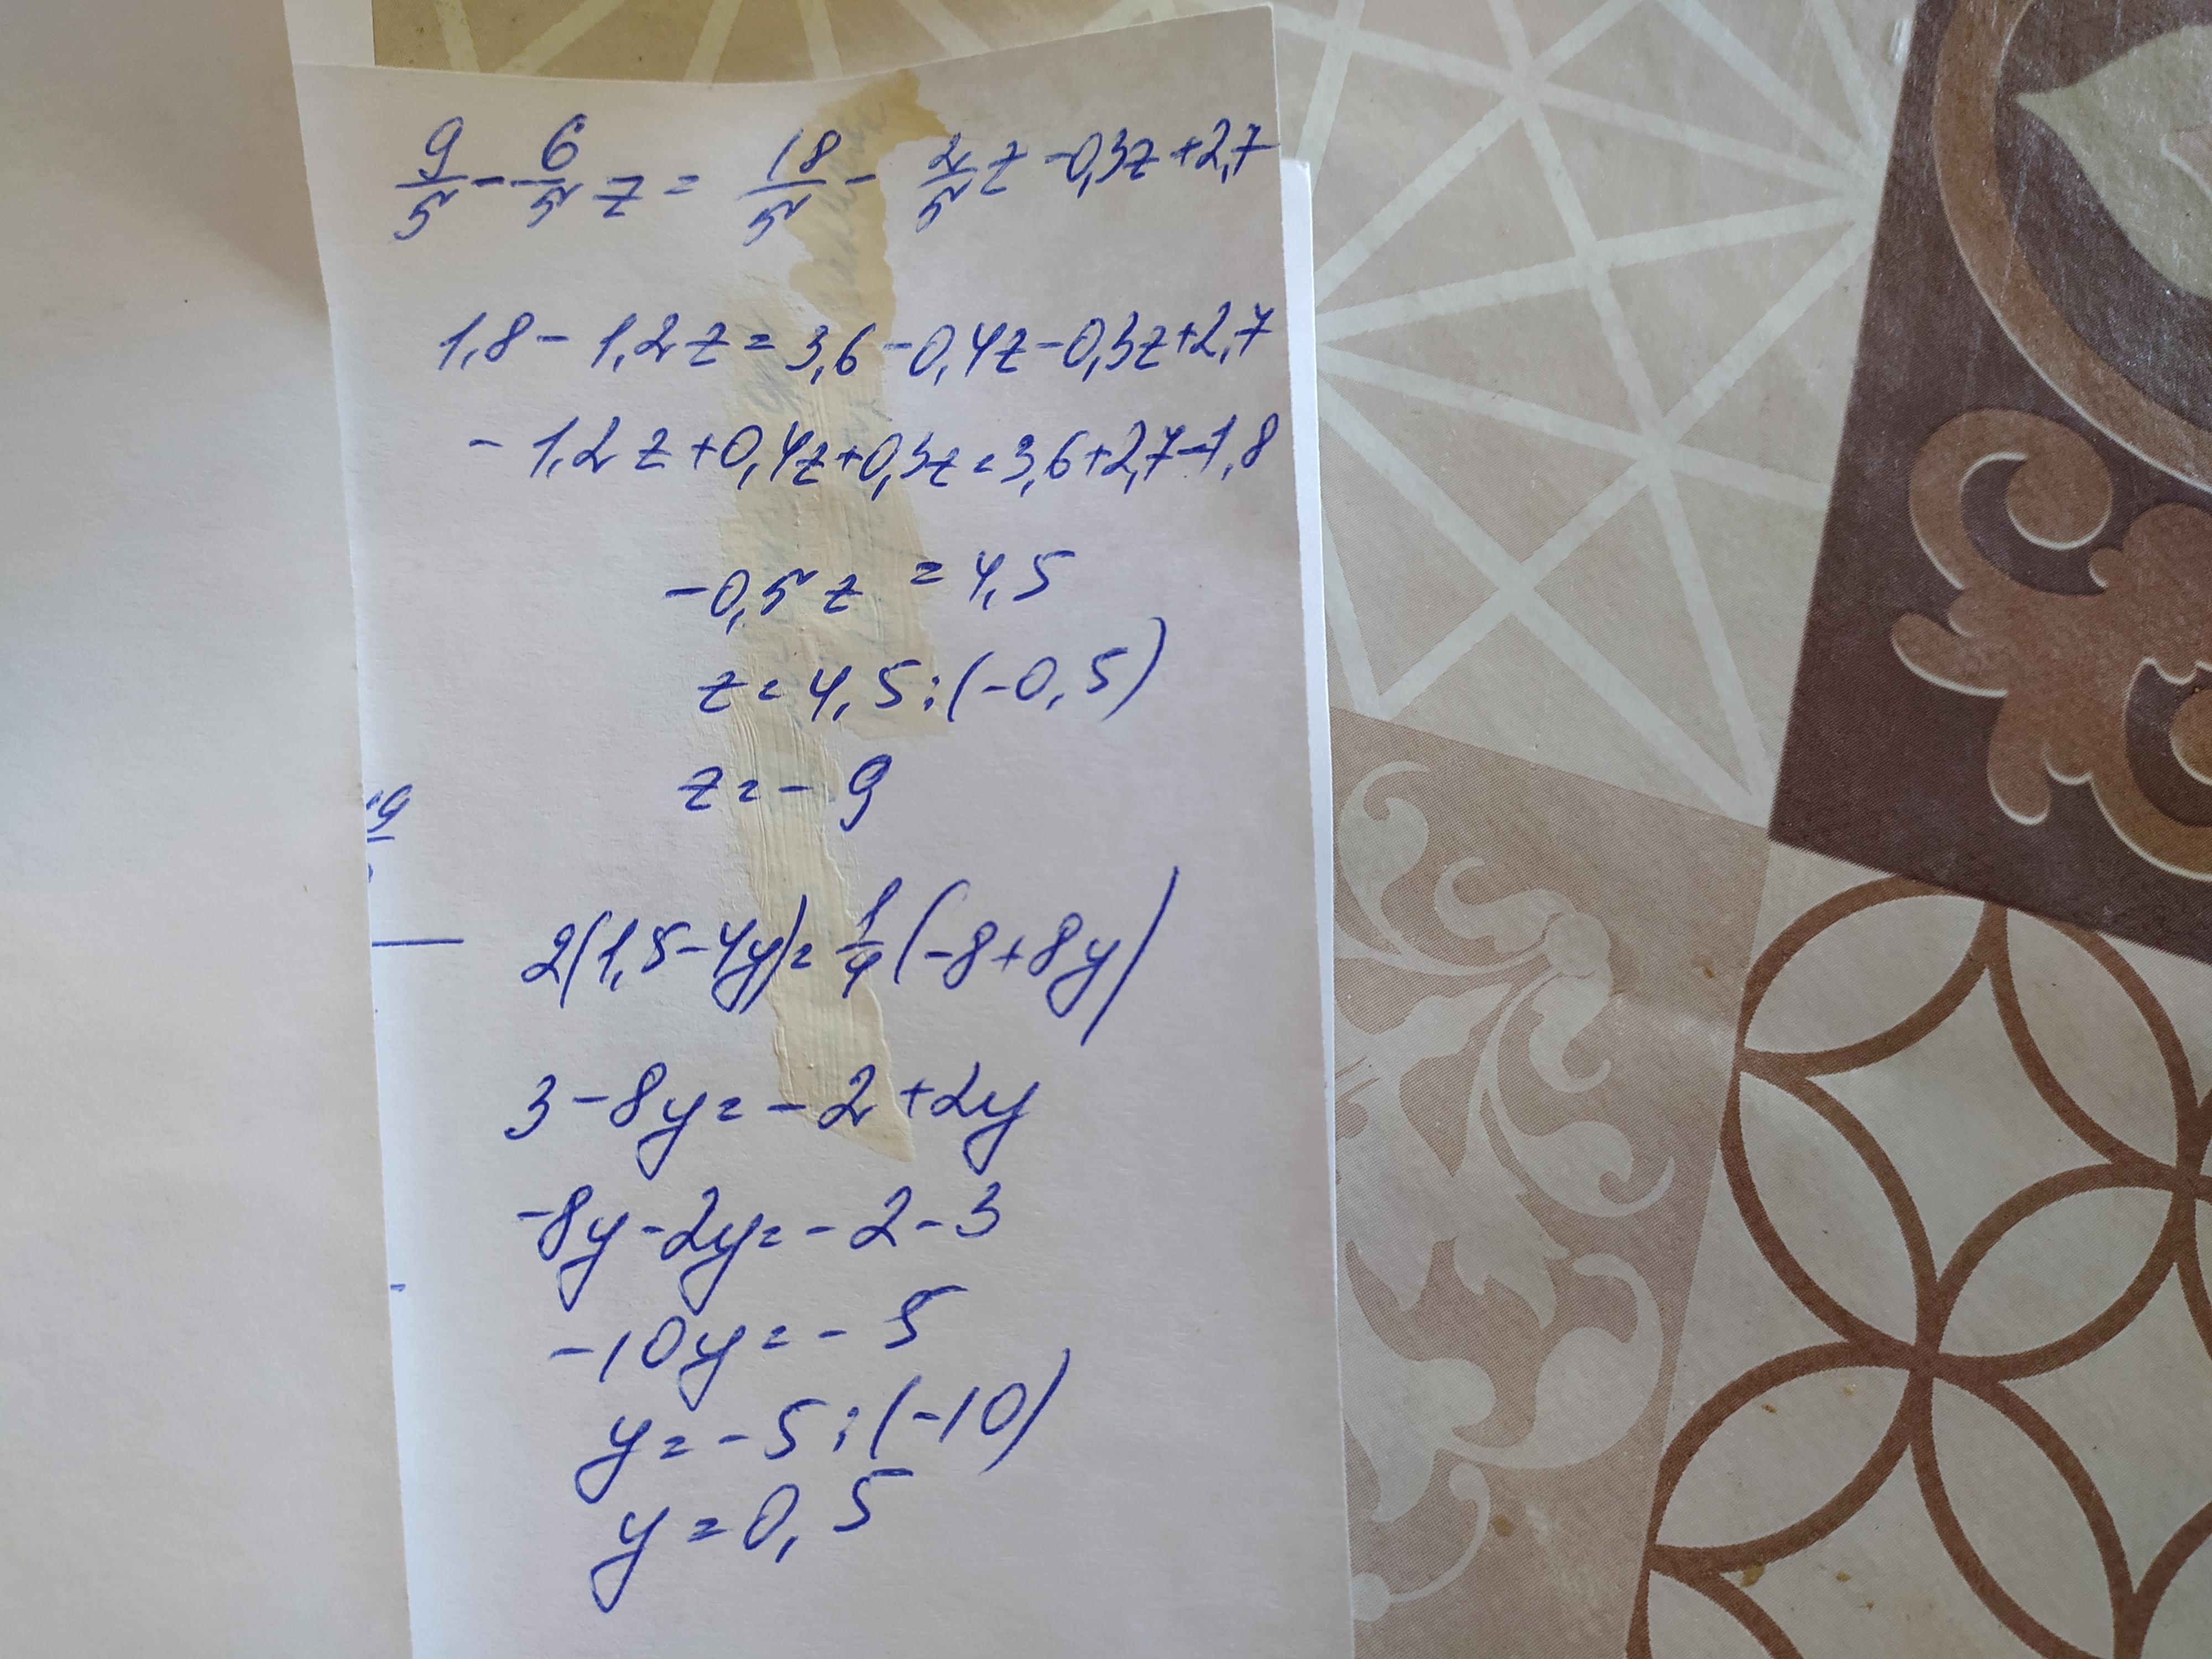 9/5 - 6/5 z = 18/5 - 2/5 z - 0,3z + 2,7
1,8 - 1,2z = 3,6 - 0,4z - 0,3z + 2,7
- 1,2z + 0,4z + 0,3z = 3,6 + 2,7 - 1,8
-0,5z = 4,5
z = 4,5 : (-0,5)
z = - 9
2(1,5 - 4y) = 1/4 (-8 + 8y)
3 - 8y = - 2 + 2y
-8y - 2y = - 2 - 3
-10y = - 5
y = - 5 : (-10)
y = 0,5